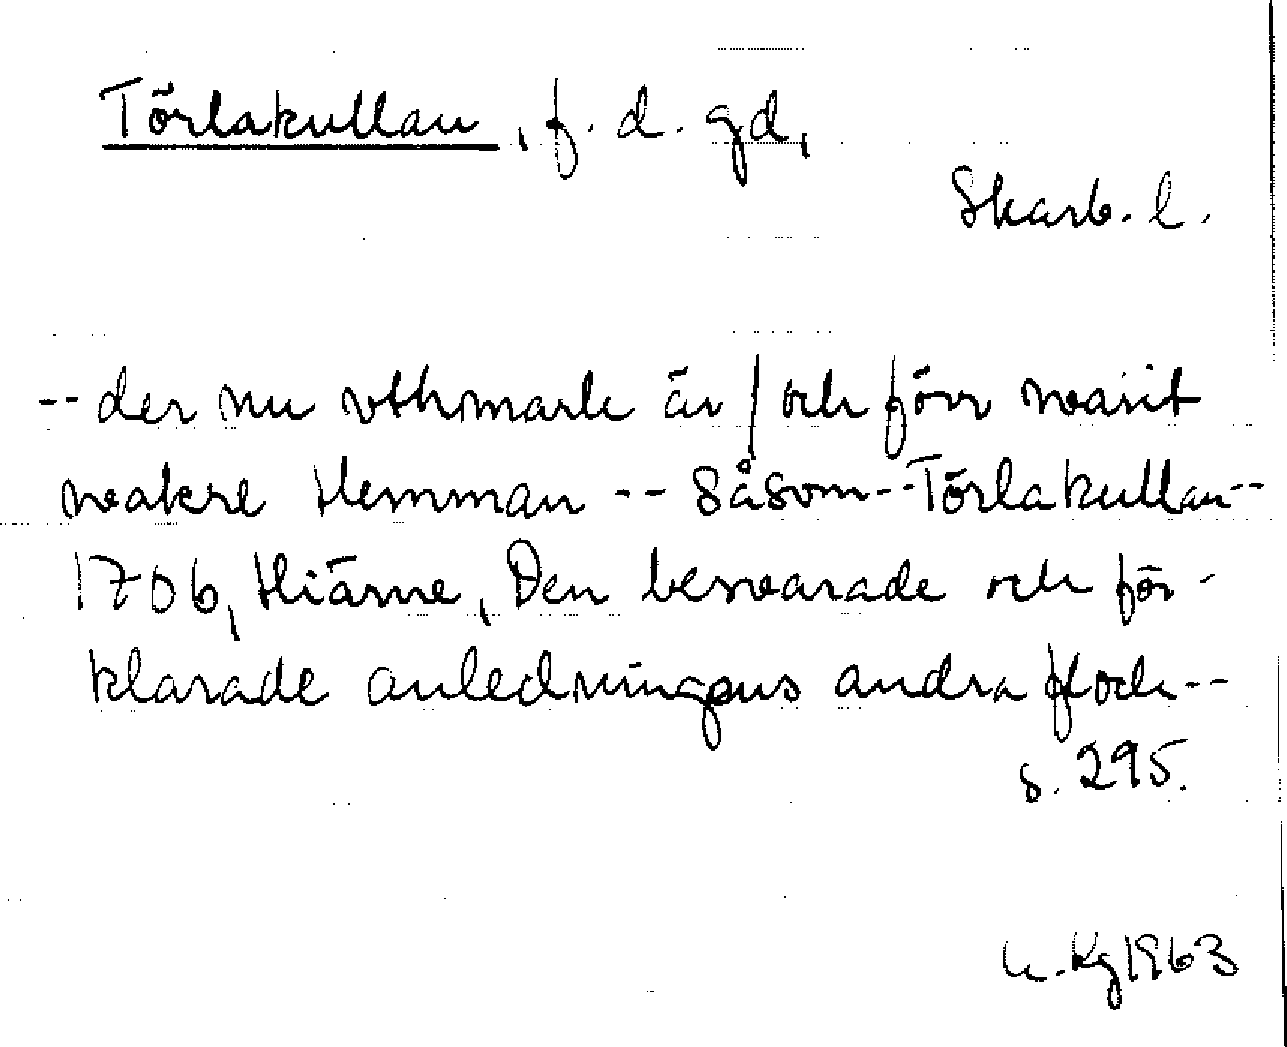 Törlakullan, f. d. gd,
Skarb. l.
-- der nu vthmark är / och förr warit
wakre Hemman -- Såsom -- Törlakullan --
1706, Hiärne, Den beswarade och för-
klarade anledningens andra flock --
s. 295.
Kg 1963